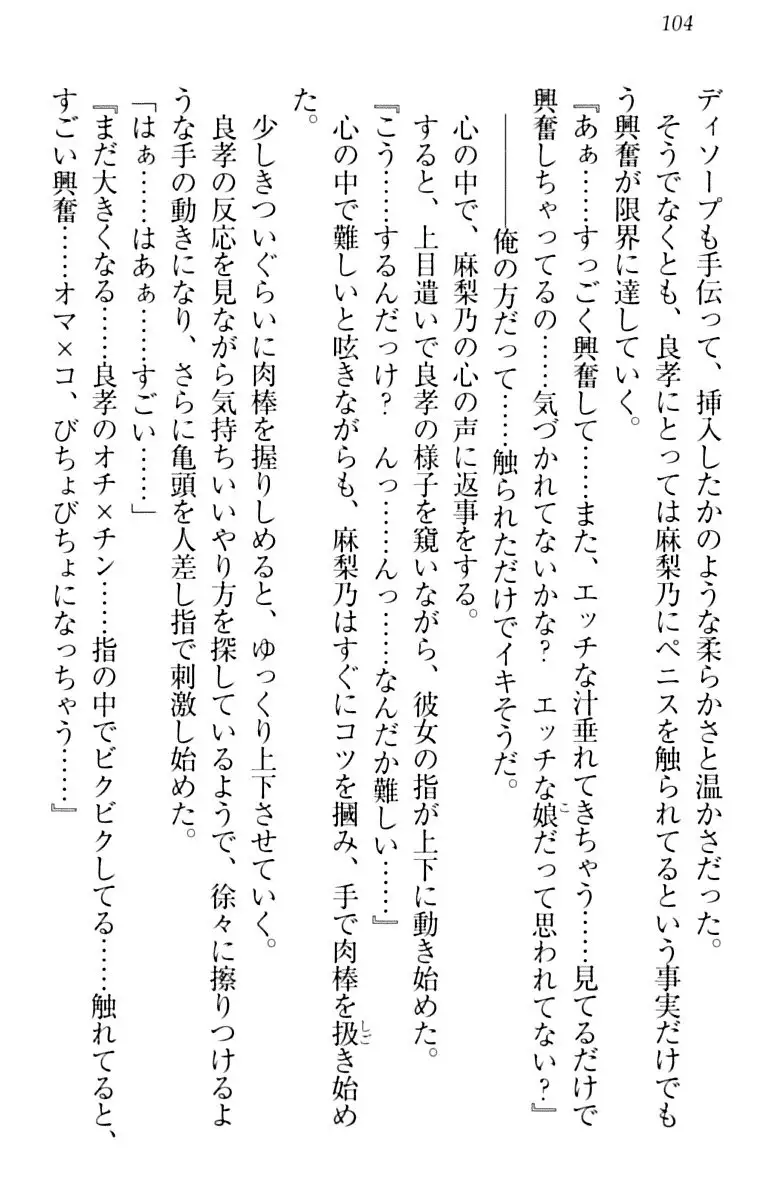 104
ディソープも手伝って、挿入したかのような柔らかさと温かさだった。
そうでなくとも、良孝にとっては麻梨乃にペニスを触られてるという事実だけでも
う興奮が限界に達していく。
『あぁ……すっごく興奮して……また、エッチな汁垂れてきちゃう……見てるだけで
興奮しちゃってるの……気づかれてないかな？　エッチな娘だって思われてない？』
こ
――俺の方だって……触られただけでイキそうだ。
心の中で、麻梨乃の心の声に返事をする。
すると、上目遣いで良孝の様子を窺いながら、彼女の指が上下に動き始めた。
『こう……するんだっけ？　んっ……んっ……なんだか難しい……』
心の中で難しいと呟きながらも、麻梨乃はすぐにコツを摑み、手で肉棒を扱き始め
しご
た。
少しきついぐらいに肉棒を握りしめると、ゆっくり上下させていく。
良孝の反応を見ながら気持ちいいやり方を探しているようで、徐々に擦りつけるよ
うな手の動きになり、さらに亀頭を人差し指で刺激し始めた。
「はぁ……はあぁ……すごい……」
『まだ大きくなる……良孝のオチ×チン……指の中でビクビクしてる……触れてると、
すごい興奮……オマ×コ、びちょびちょになっちゃう……』